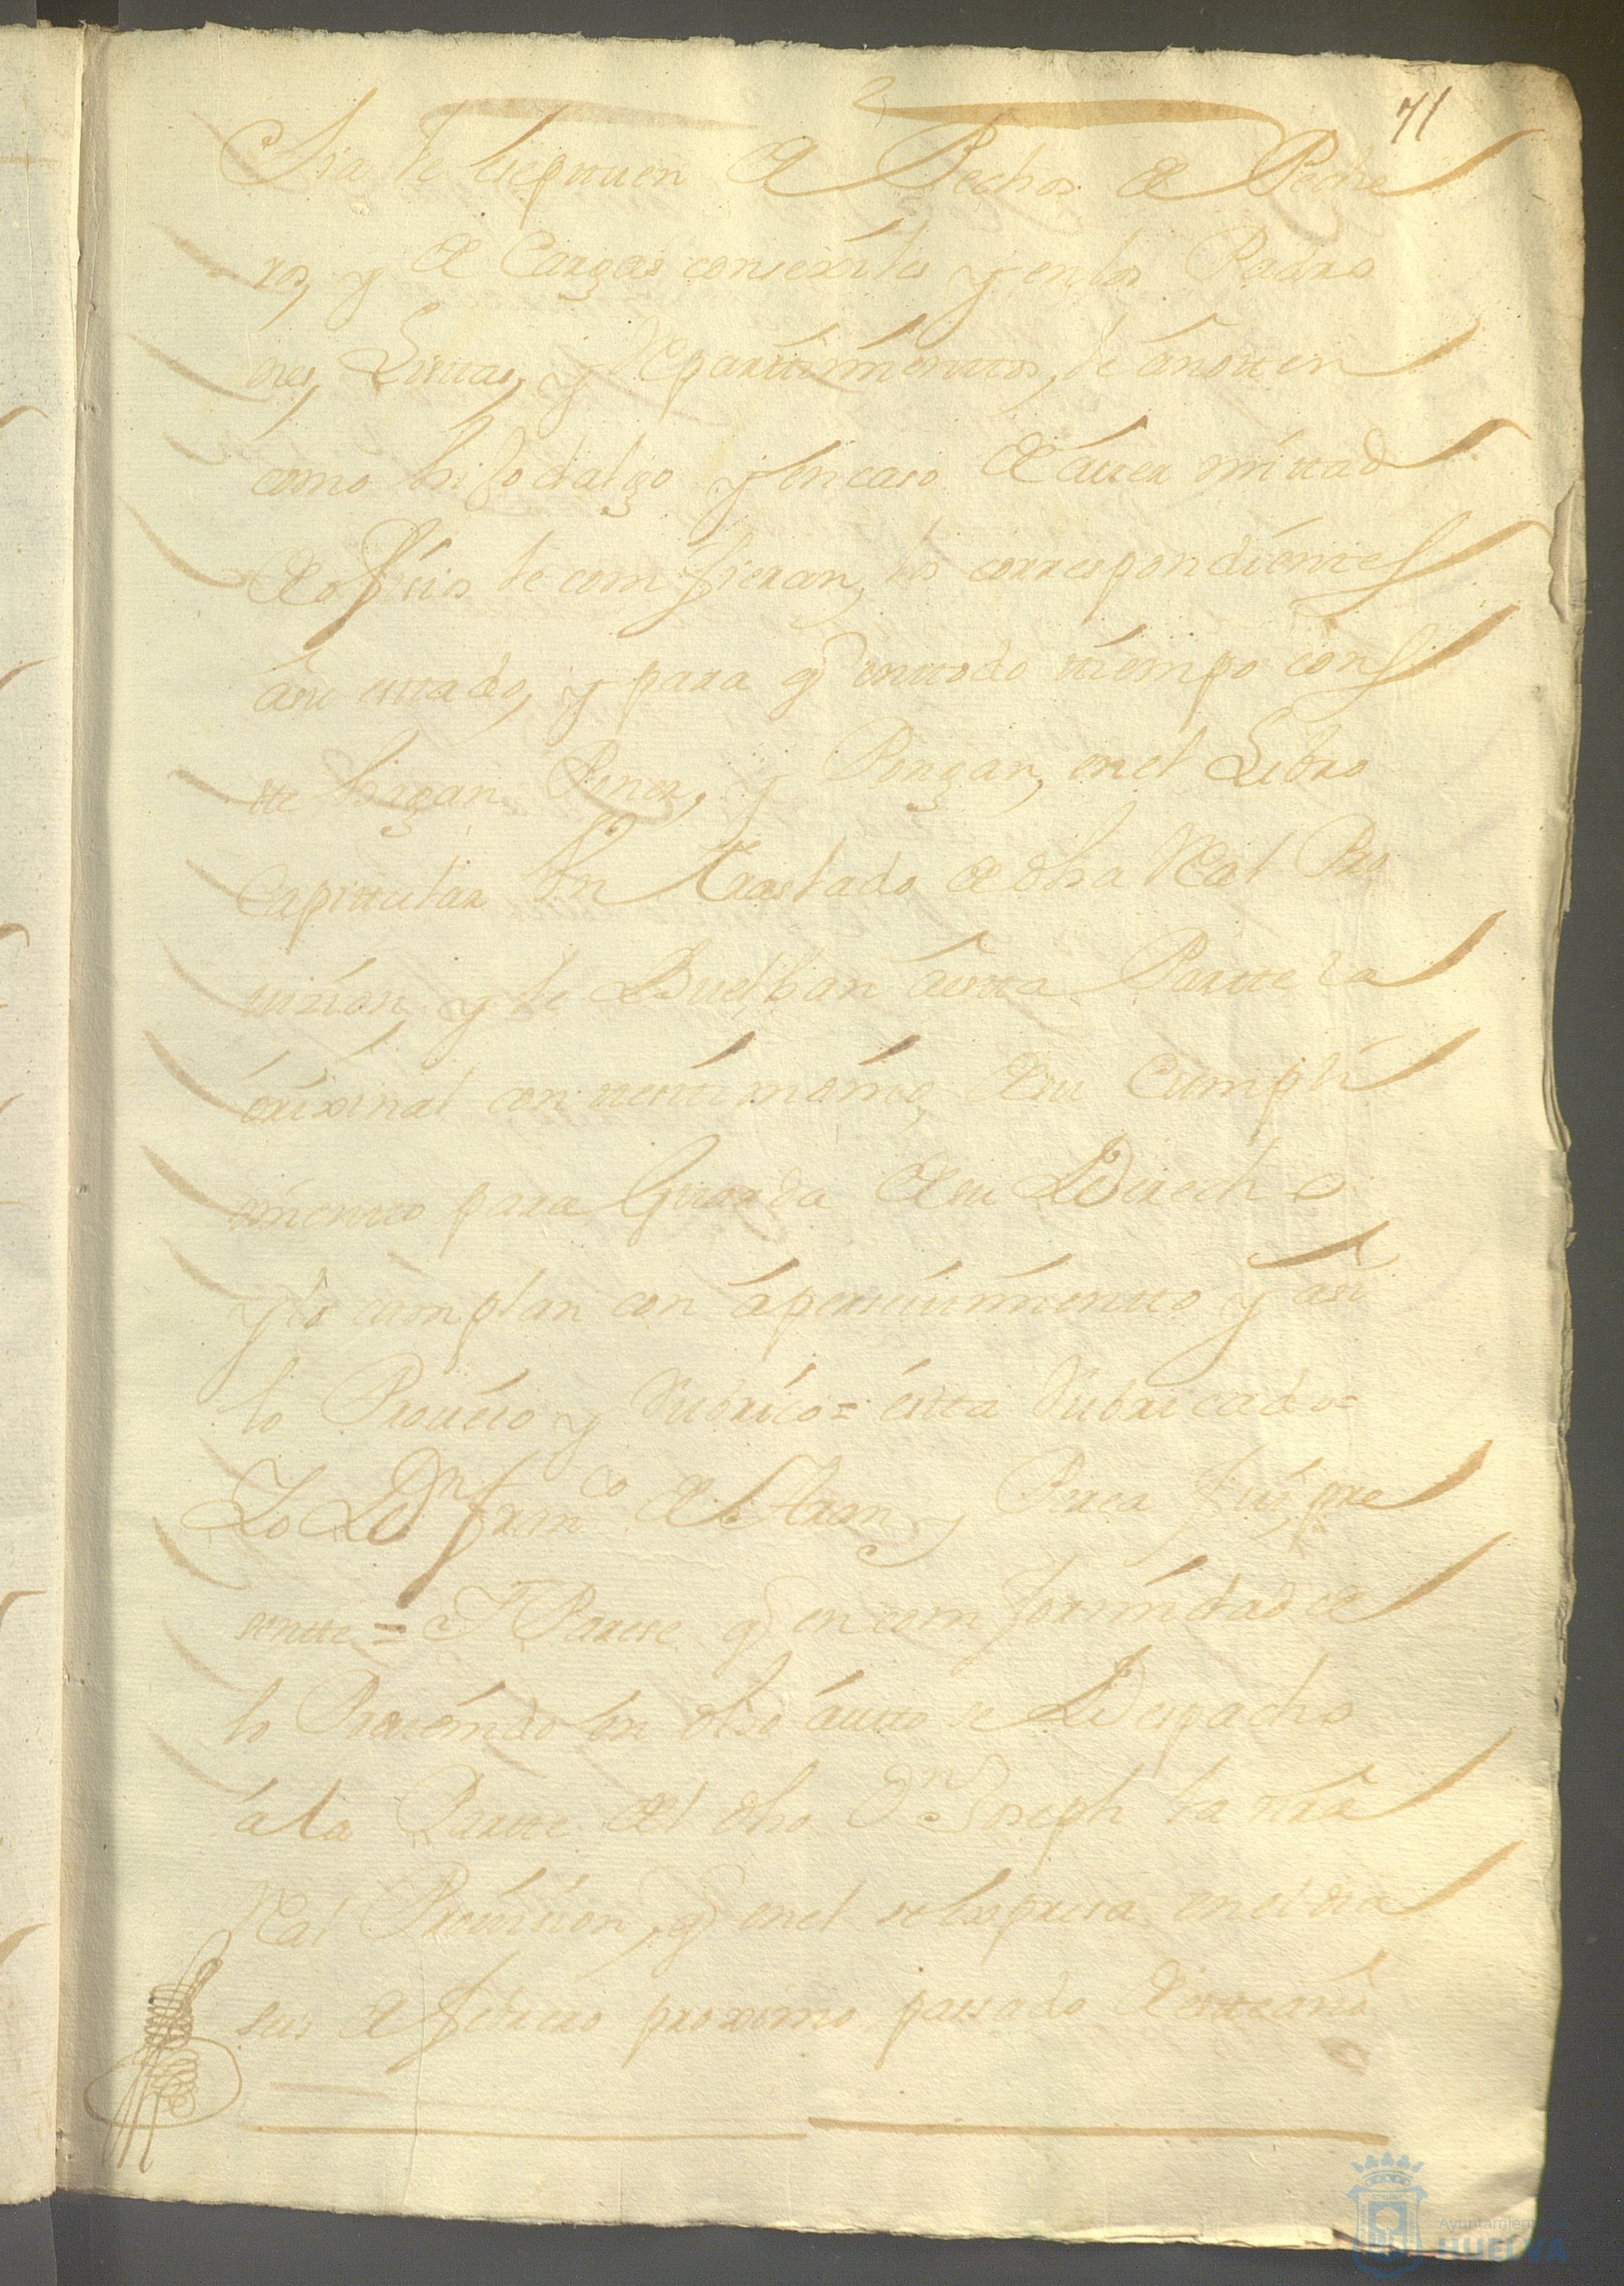 71
se de Pechos de Peche
ros, y de Cargas conserxiles y en los Padro
nes, Listtas, y Reparttimienttos, le anotten
como hijodalgo y en caso de auer mittad
de ofisios le comfieran, los correspondientes
a su esttado, y para q en ttodo ttiempo cons
tte hagan Poner, y Pongan, en el Libro
Capittular Un Traslado de dha Real Pro
uizion, y le Buelban a estta Partte la
orixinal con testtimonio, de su Cumpli
mientto para Guarda de su Derecho
y lo cumplan con aperseuimientto y asi
lo Proueio y Rubrico = estta Rubricado =
Yo Dn Franco de Aran y Perea fui pre
sentte = Y Parese q en comformidad de
lo Proueido en dho autto se Despacho
a la Partte del dho Dn Joseph la nra
Real Prouision, q en el se Expresa en el dia
seis de febrero proximo passado de estte año
Ayuntamiento de
HUELVA